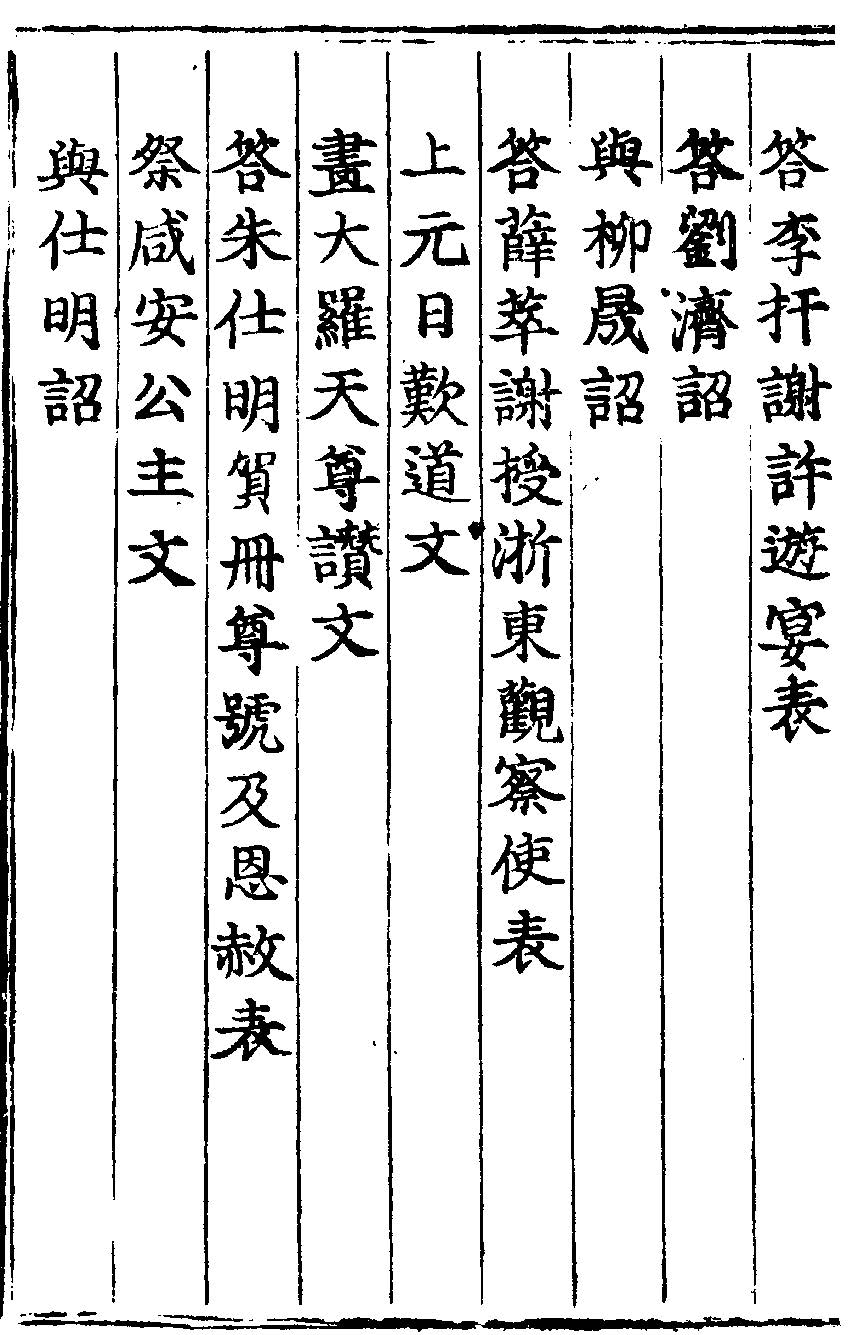 答李扞謝許遊宴表
答劉濟詔
與柳晟詔
答薛苹謝授浙東觀察使表
上元日歎道文
畫大羅天尊讚文
答朱仕明賀冊尊號及恩赦表
祭咸安公主文
與仕明詔